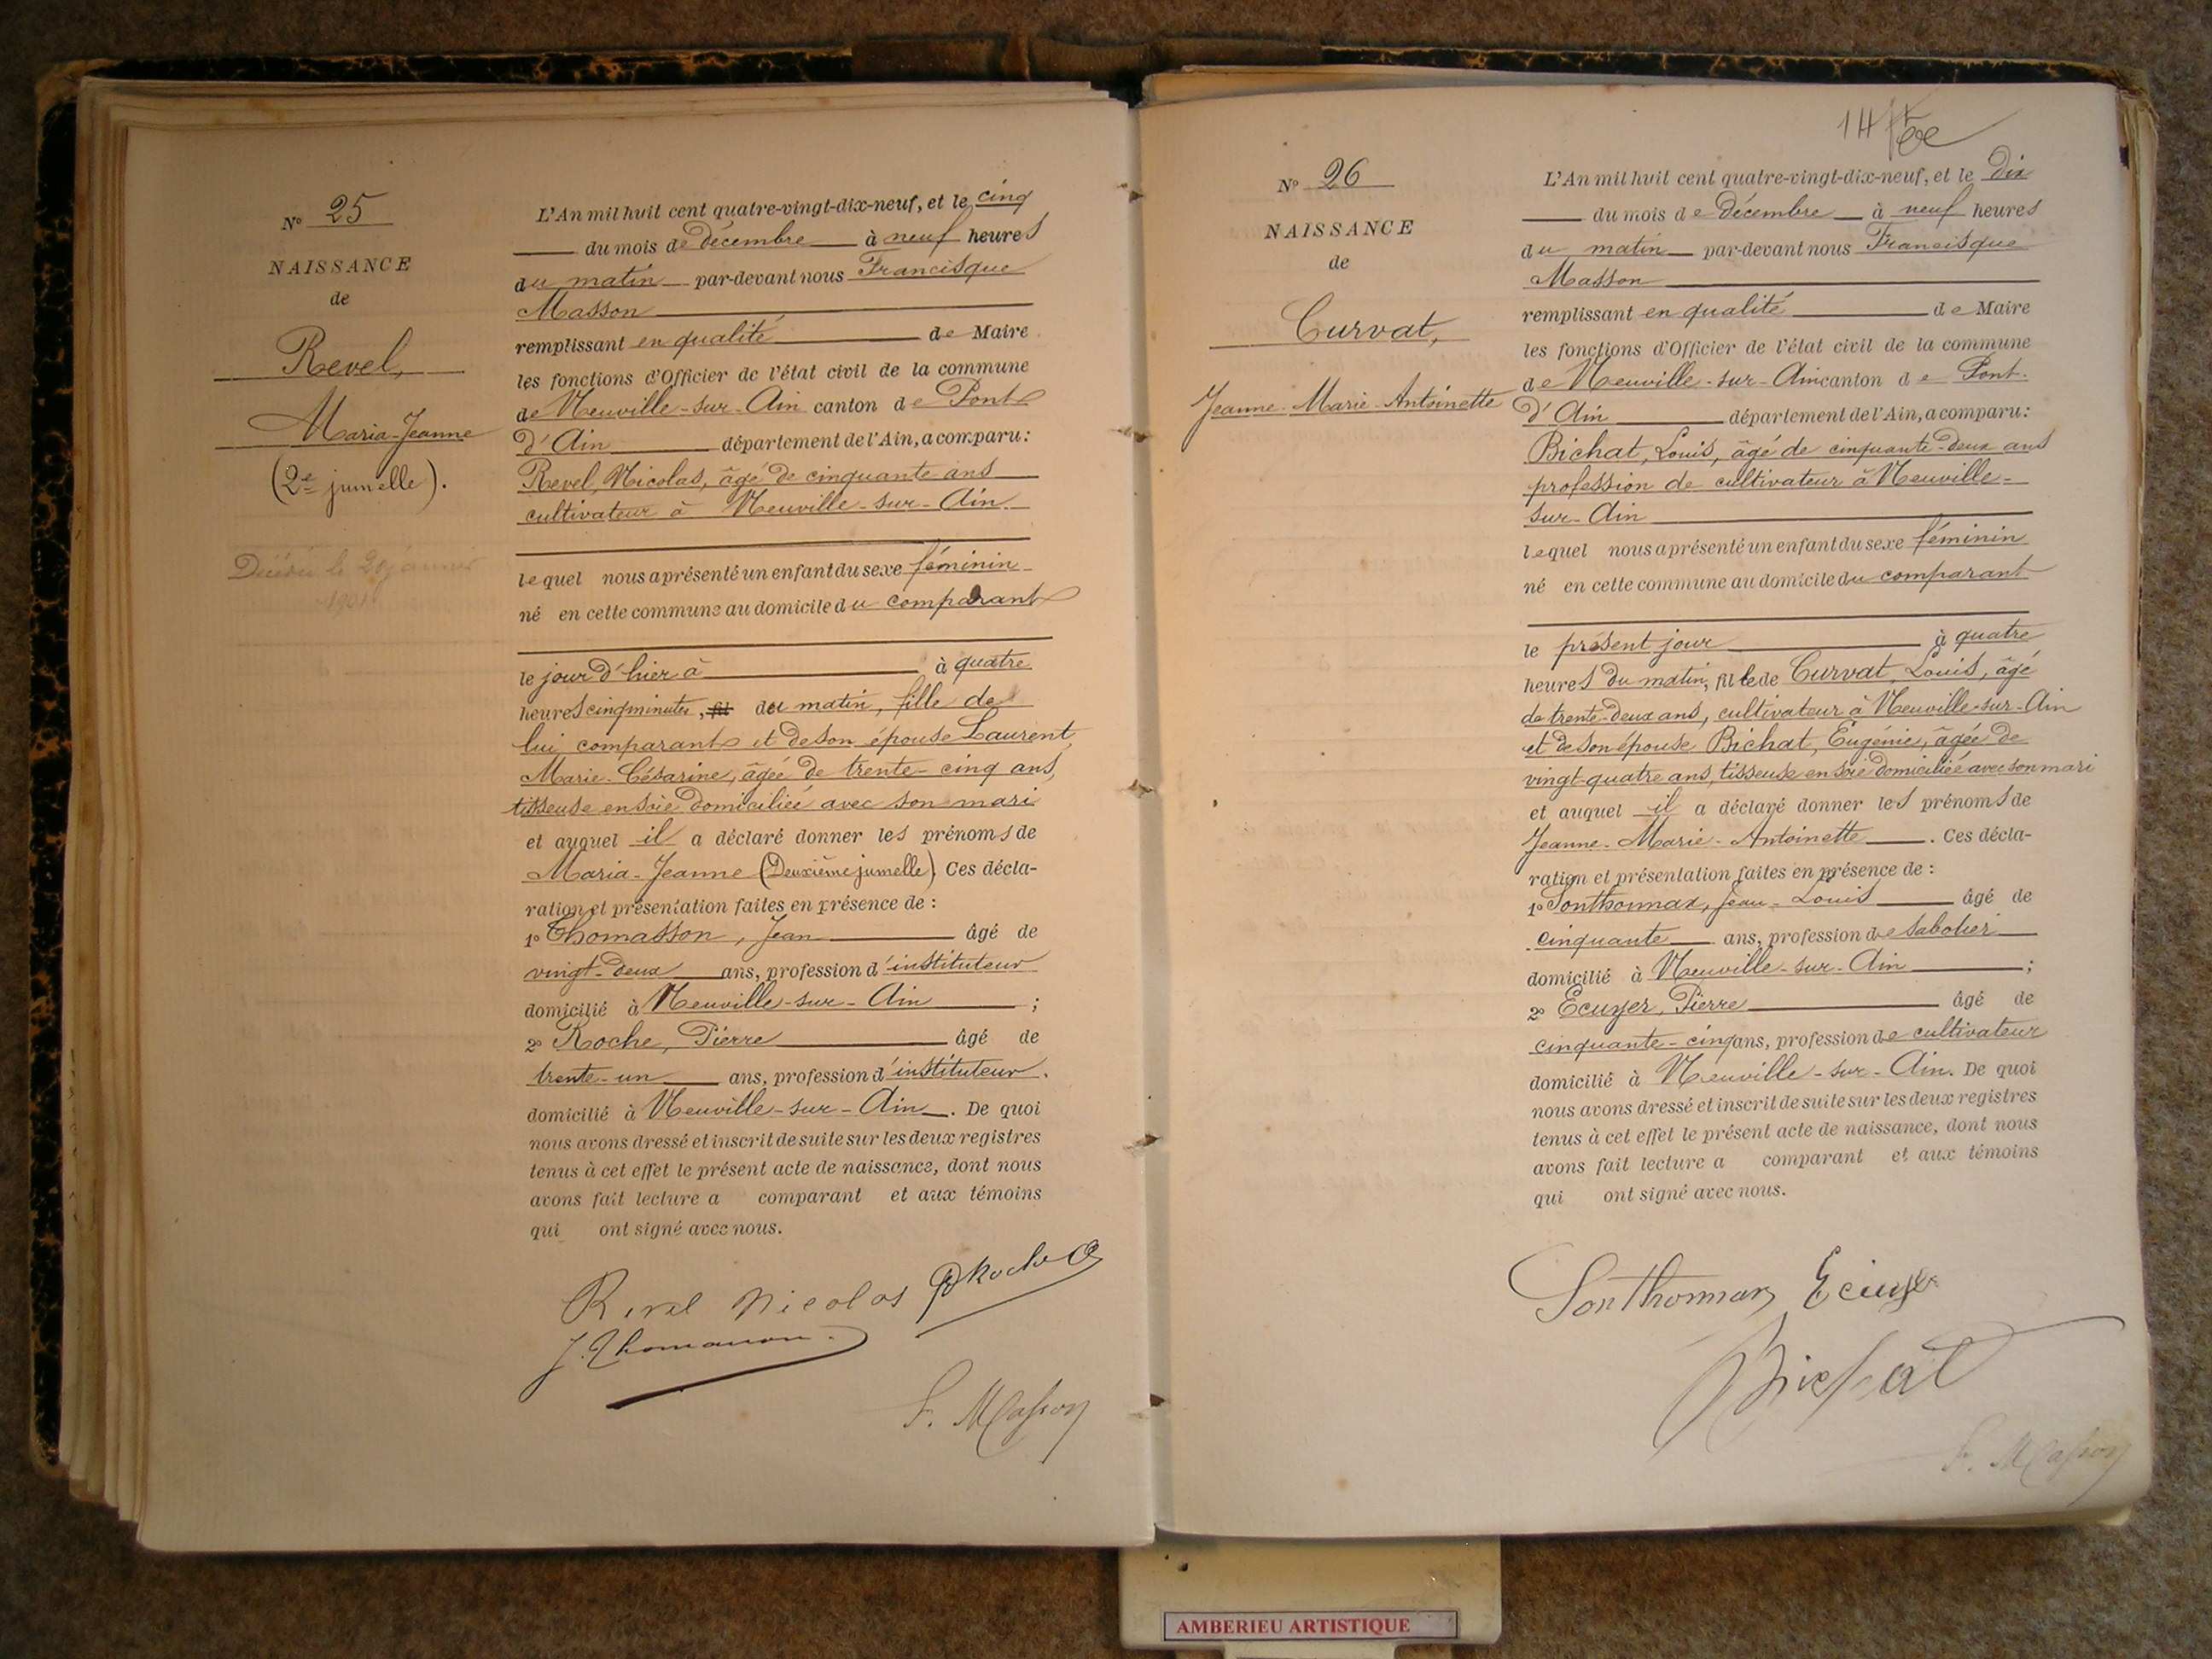 N° 25
NAISSANCE
de
Revel,
Maria-Jeanne
(2e jumelle).
Décédée le 20 janvier
1901
L'An mil huit cent quatre-vingt-dix-neuf, et le cinq
du mois de Décembre à neuf heures
du matin par-devant nous Francisque
Masson
remplissant en qualité de Maire
les fonctions d'Officier de l'état civil de la commune
de Neuville-sur-Ain canton de Pont
d'Ain département de l'Ain, a comparu:
Revel, Nicolas, âgé de cinquante ans
cultivateur à Neuville-sur-Ain.
lequel nous a présenté un enfant du sexe féminin
né en cette commune au domicile du comparant
le jour d'hier à à quatre
heures cinq minutes, fil du matin, fille de
lui comparant et de son épouse Laurent,
Marie-Césarine, âgée de trente-cinq ans,
tisseuse en soie domiciliée avec son mari
et auquel il a déclaré donner les prénoms de
Maria-Jeanne (Deuxième jumelle). Ces décla-
ration et présentation faites en présence de :
1° Thomasson, Jean âgé de
vingt-deux ans, profession d'instituteur
domicilié à Neuville-sur-Ain ;
2° Roche, Pierre âgé de
trente-un ans, profession d'instituteur.
domicilié à Neuville-sur-Ain. De quoi
nous avons dressé et inscrit de suite sur les deux registres
tenus à cet effet le présent acte de naissance, dont nous
avons fait lecture a comparant et aux témoins
qui ont signé avec nous.
Revel Nicolas P Roche
J. Thomasson
F. Masson
14
N° 26
NAISSANCE
de
Curvat,
Jeanne-Marie-Antoinette
L'An mil huit cent quatre-vingt-dix-neuf, et le Dix
du mois de Décembre à neuf heures
du matin par-devant nous Francisque
Masson
remplissant en qualité de Maire
les fonctions d'Officier de l'état civil de la commune
de Neuville-sur-Ain canton de Pont-
d'Ain département de l'Ain, a comparu:
Bichat, Louis, âgé de cinquante-deux ans
profession de cultivateur à Neuville-
sur-Ain
lequel nous a présenté un enfant du sexe féminin
né en cette commune au domicile du comparant
le présent jour à quatre
heures du matin, fille de Curvat, Louis, âgé
de trente-deux ans, cultivateur à Neuville-sur-Ain
et de son épouse Bichat, Eugénie, âgée de
vingt-quatre ans, tisseuse en soie domiciliée avec son mari
et auquel il a déclaré donner les prénoms de
Jeanne-Marie-Antoinette. Ces décla-
ration et présentation faites en présence de :
1° Sonthonnax, Jean-Louis âgé de
cinquante ans, profession de sabotier
domicilié à Neuville-sur-Ain ;
2° Ecuyer, Pierre âgé de
cinquante-cinq ans, profession de cultivateur
domicilié à Neuville-sur-Ain. De quoi
nous avons dressé et inscrit de suite sur les deux registres
tenus à cet effet le présent acte de naissance, dont nous
avons fait lecture a comparant et aux témoins
qui ont signé avec nous.
Sonthonnax Ecuyer
Bichat
F. Masson
AMBERIEU ARTISTIQUE